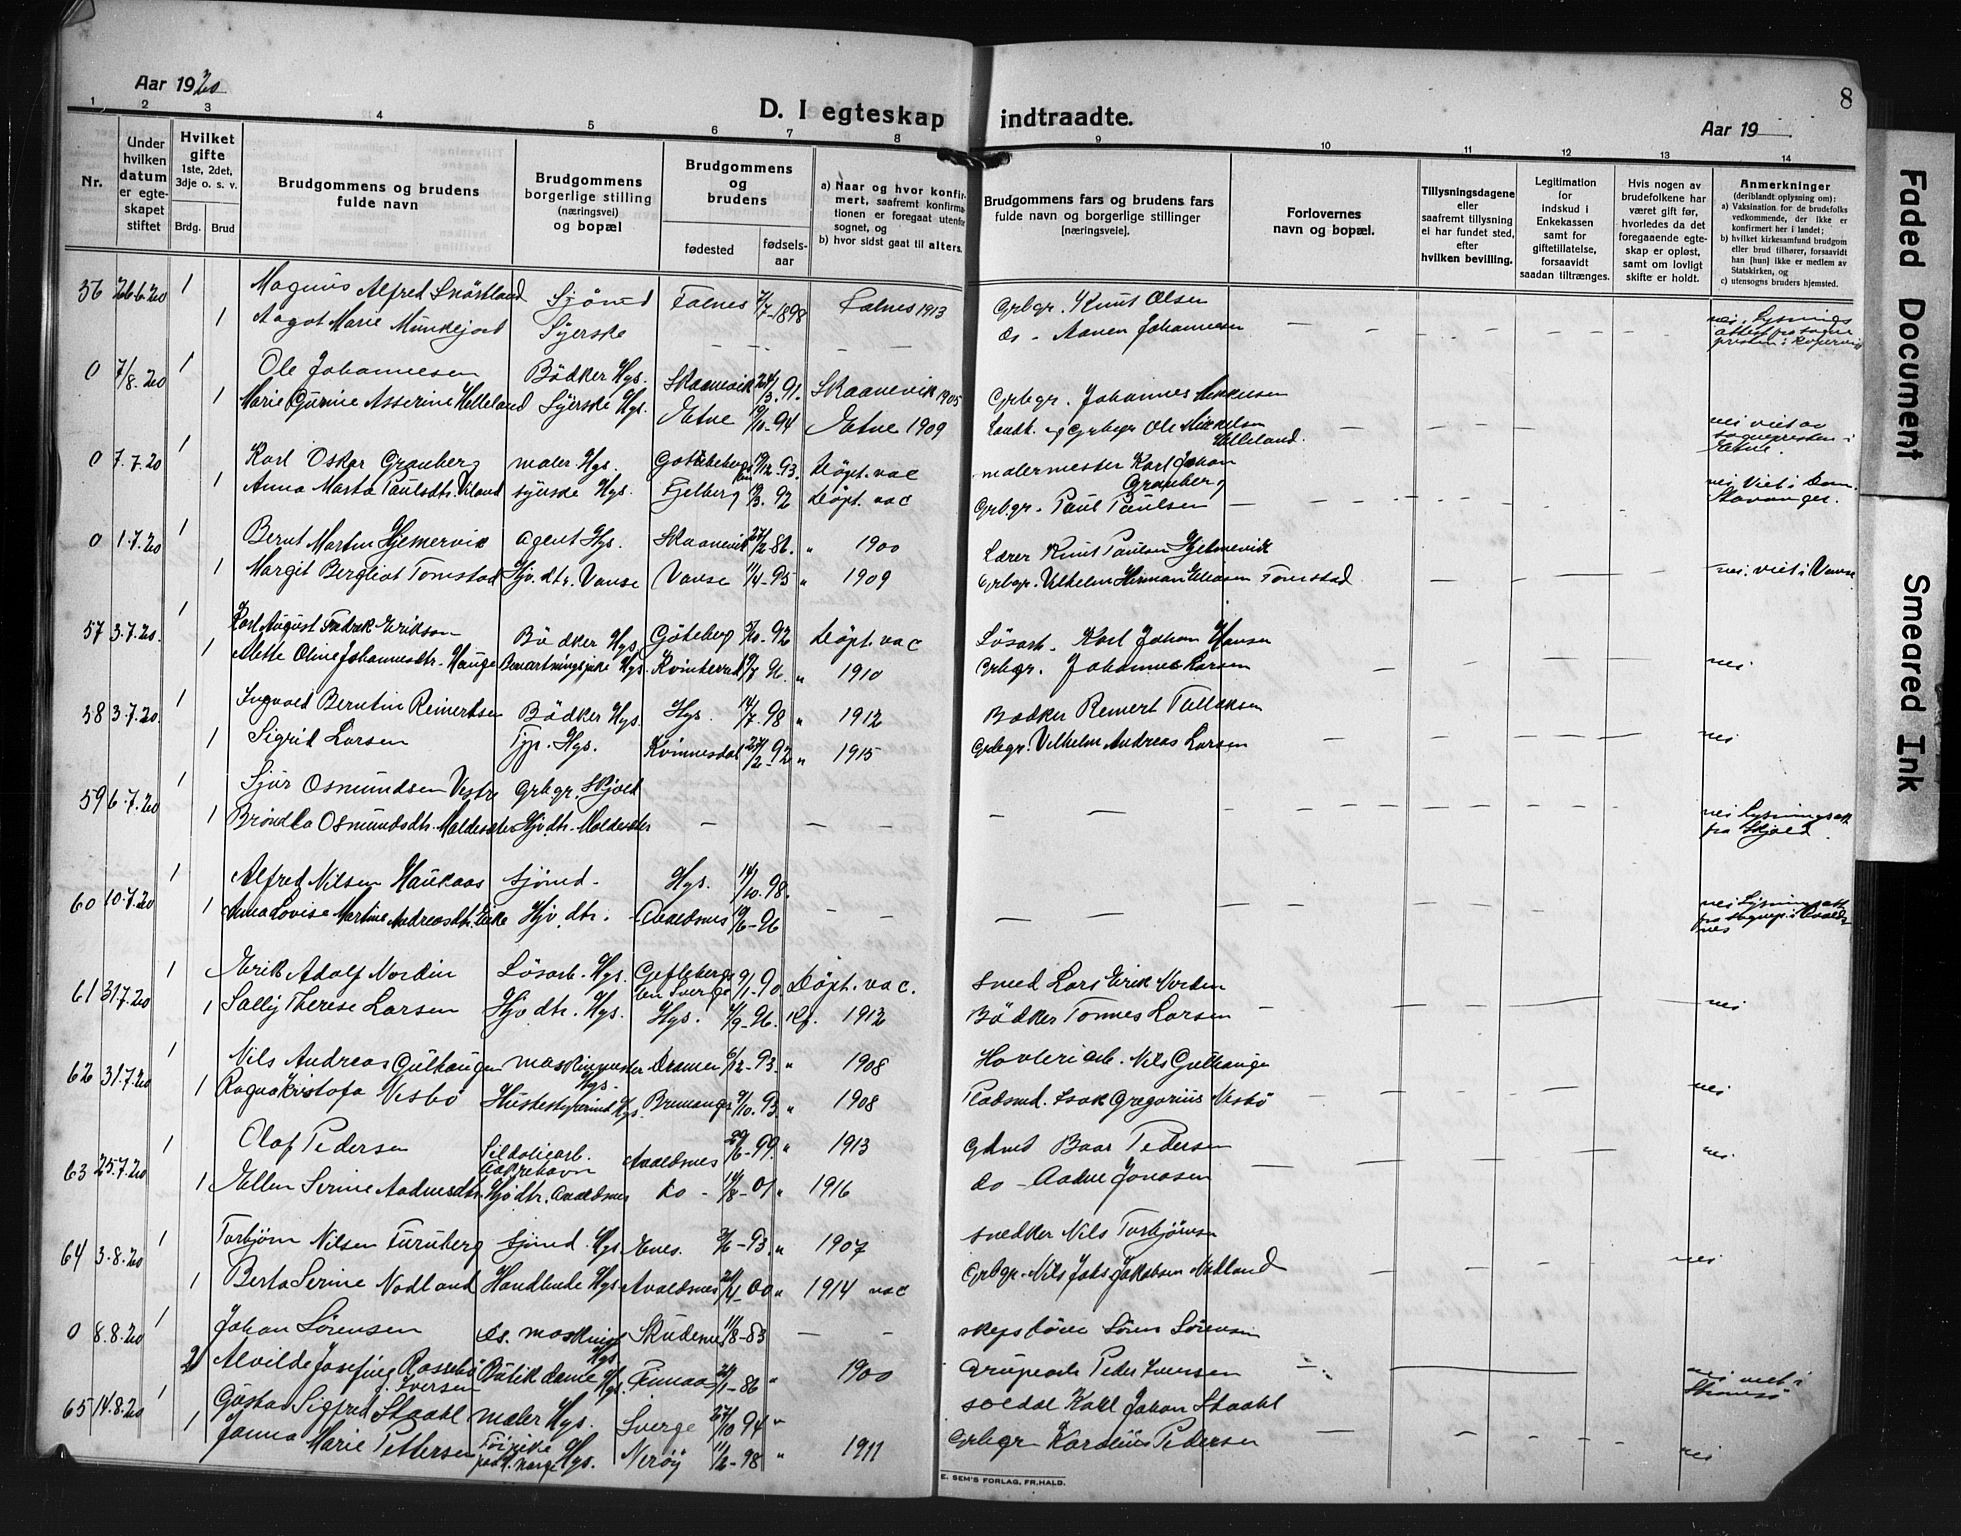 Aar 1920
D. I egteskap indtraadte.
Aar 19
8
1 2 3 4 5 6 7 8 9 10 11 12 13 14
Nr.
Under hvilken datum er egteskapet stiftet
Hvilket gifte 1ste, 2det, 3dje o. s. v.
Brdg. Brud
Brudgommens og brudens fulde navn
Brudgommens borgerlige stilling (næringsvei) og bopæl
Brudgommens og brudens
fødested fødselsaar
a) Naar og hvor konfirmert, saafremt konfirmationen er foregaat utenfor sognet, og
b) hvor sidst gaat til alters.
Brudgommens fars og brudens fars fulde navn og borgerlige stillinger (næringsveie).
Forlovernes navn og bopæl.
Tillysningsdagene eller saafremt tillysning ei har fundet sted, efter hvilken bevilling.
Legitimation for indskud i Enkekassen samt for giftetillatelse, forsaavidt saadan tiltrænges.
Hvis nogen av brudefolkene har været gift før, hvorledes da det foregaaende egteskap er opløst, samt om lovligt skifte er holdt.
Anmerkninger (deriblandt oplysning om):
a) Vaksination for de brudefolks vedkommende, der ikke er konfirmert her i landet;
b) hvilket kirkesamfund brudgom eller brud tilhører, forsaavidt han [hun] ikke er medlem av Statskirken, og
c) utensogns bruders hjemsted.
56 26.6.20 1 Magnus Alfred Snörtland Sjömd Falnes 7/7-1898 Falnes 1913 Grbgr. Knut Olsen
1 Aagot Marie Munkejord Syerske — — — — do - Aanen Johannesen nei. Lysnings attest fra sogne presten i Kopervik
0 7/8.20 1 Ole Johannesen Bödker Hgs. Skaanevik 24/3.91. Skaanevik 1905 Grbgr. Johannes Mikkelsen
1 Marie Gurine Asserine Helleland Syerske Hgs. Etne 19/10-94 Etne 1909 Landh. og Grbgr Ole Mikkelsen Helleland. nei viet av sognepresten i Etne.
0 7.7.20 1 Karl Oskar Granberg maler Hgs. Göteborg 19/12.93. Döpt. vac malermester Karl Johan Granberg
1 Anna Marta Paulsdtr. syerske Hgs. Fjelberg 19/3.92 Döpt. vac Grbgr. Paul Paulsen nei Viet i Dom. Stavanger.
0 1.7.20 1 Bernt Martin Hjelmervik agent Hgs. Skaanevik 27/2 86. " 1900 Lærer Knut Paulsen Hjelmevik
1 Margit Bergliot Tomstad Hjv. dtr. Vanse Vanse 11/4-95 " 1909 Grbgr. Vilhelm Herman Eliasen Tomstad nei. viet i Vanse
57 3.7.20. 1 Karl August Fredrik Erikson Bödker Hgs Göteborg 2/10-92 Döpt. vac Lösarb. Karl Johan Hansen
1 Mette Oline Johannesdtr. Hauge Hgs. 19/7 96. " 1910 Grbgr. Johannes Larsen nei
58 3.7.20. 1 Ingvald Berntin Reinertsen Bödker Hgs. Hgs. 14/7.98 " 1912 Bödker Reinert Tallaksen
1 Sigrid Larsen Tjp. Hgs. Kvinnesdal 27/2-92 " 1915 Grbgr. Vilhelm Andreas Larsen nei
59 6.7.20 1 Sjur Osmundsen Vestre Grbgr. Skjold
1 Brönlla Osmundsdtr. Hjv. dtr. — — — — nei Lysningsatt. fra Skjold.
60 10.7.20 1 Alfred Nilsen Haukaas Sjömd. Hgs. 14/10.98.
1 Anna Lovise Martine Andreasdtr. Eike Hjv. dtr. Avaldsnes 19/6-96 — — nei Lysningsatt. fra sognep. i Avaldsnes
61 31.7.20 1 Erik Adolf Nordin Lösarb. Hgs. Gefleborgs len Sverge 9/1-90. Döpt. vac. Smed Lars Erik Norden
1 Sally Therese Larsen Hjv dtr. Hgs. Hgs. 4/9-96. Kf. 1912 Bödker Tönnes Larsen nei
62 31.7.20 1 Nils Andreas Gulhaugen maskinmester Hgs. Dramen 6/12-93. " 1908 Hövleriarb. Nils Gulhaugen
1 Ragna Kristofa Vesbö Husbestyrerind Hgs. Bremanger 9/10.93. " 1908 Pladsmd. Isak Gregorius Vesbö nei
63 25.7.20 1 Olaf Pedersen Sildoliearb. Aakrehavn Avaldsnes 29/6-99. " 1913 Gdmd Baar Pedersen nei.
1 Ellen Serine Aadnesdtr. Hjv dtr. Avaldsnes do - 14/8-01 " 1916 do - Aadne Jonasen
64 3.8.20 1 Torbjörn Nilsen Furuberg Sjömd. Hgs. Enes. 3/6-93 " 1907 snedker Nils Torbjörnsen
1 Berta Serine Nodland Handlende Hgs Avaldsnes 24/4-00 " 1914 vac Grbgr. Nils Jakob Jakobsen Nodland nei
0 8.8.20 1 Johan Sörensen Hgs Skudenes 11/8-83 — — Sören Sörensen
2 Alvilde Josefine Rossebö f. Iversen Butikdame Hgs. 24/1-86 " 1900 Peder Iversen nei viet i Strömsö
65 14.8.20 1 Gustav Sigfred Staahl maler Hgs. Sverge 27/10 94 " soldat Karl Johan Staahl
1 Janna Marie Pettersen Hgs. Neröy 11/2-98 " 1911 Grbgr Karolius Pedersen nei
E. SEM'S FORLAG, FR.HALD.
Faded Document
Smeared Ink